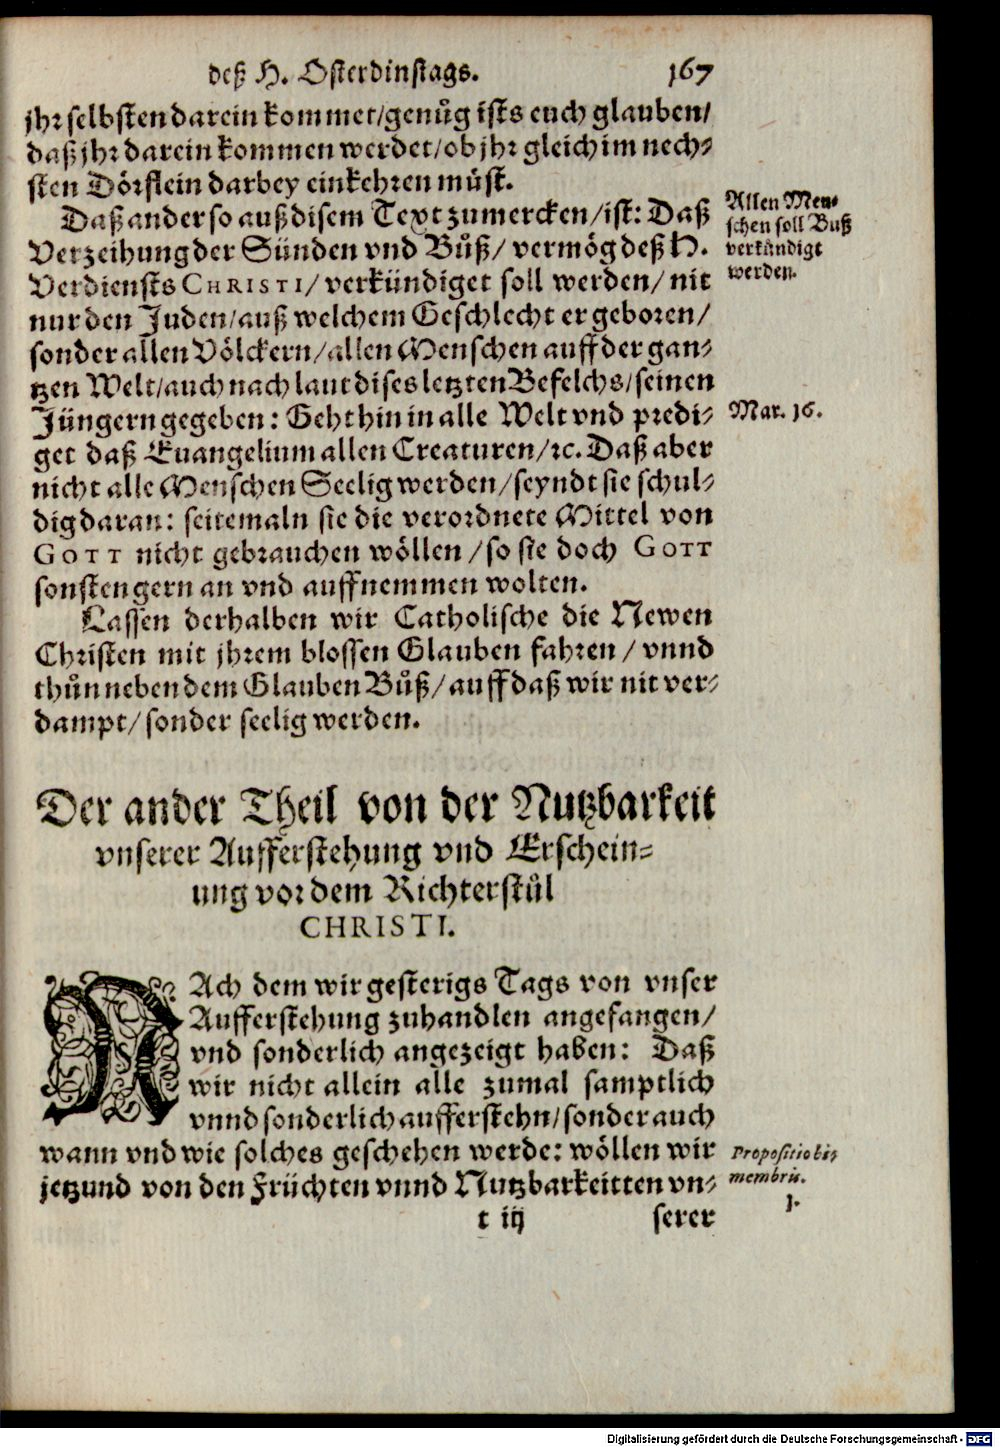 deß H. Osterdinstags. 167
jhr selbsten darein kommet/genůg ists euch glauben/
daß jhr darein kommen werdet/ob jhr gleich im nech-
sten Dörflein darbey einkehren müst.
Daß ander so auß disem Text zumercken/ist: Daß
Verzeihung der Sünden vnd Bůß/ vermög deß H.
Verdiensts CHRISTI/ verkündiget soll werden/ nit
nur den Juden/auß welchem Geschlecht er geboren/
sonder allen Völckern/allen Menschen auff der gan-
tzen Welt/auch nach laut dises letzten Befelchs/seinen
Jüngern gegeben: Geht hin in alle Welt vnd predi-
get daß Euangelium allen Creaturen/ꝛc. Daß aber
nicht alle Menschen Seelig werden/seyndt sie schul-
dig daran: seitemaln sie die verordnete Mittel von
GOTT nicht gebrauchen wöllen/so sie doch GOTT
sonsten gern an vnd auffnemmen wolten.
Lassen derhalben wir Catholische die Newen
Christen mit jhrem blossen Glauben fahren/ vnnd
thůn neben dem Glauben Bůß/auff daß wir nit ver-
dampt/sonder seelig werden.
Allen Men-
schen soll Buß
verkündigt
werden.
Mar. 16.
Der ander Theil von der Nutzbarkeit
vnserer Aufferstehung vnd Erschein-
ung vor dem Richterstůl
CHRISTI.
NAch dem wir gesterigs Tags von vnser
Aufferstehung zuhandlen angefangen/
vnd sonderlich angezeigt haben: Daß
wir nicht allein alle zumal samptlich
vnnd sonderlich aufferstehn/sonder auch
wann vnd wie solches geschehen werde: wöllen wir
jetzund von den Früchten vnnd Nutzbarkeitten vn-
Propositio bi-
membris.
1.
t iij serer
Digitalisierung gefördert durch die Deutsche Forschungsgemeinschaft - DFG